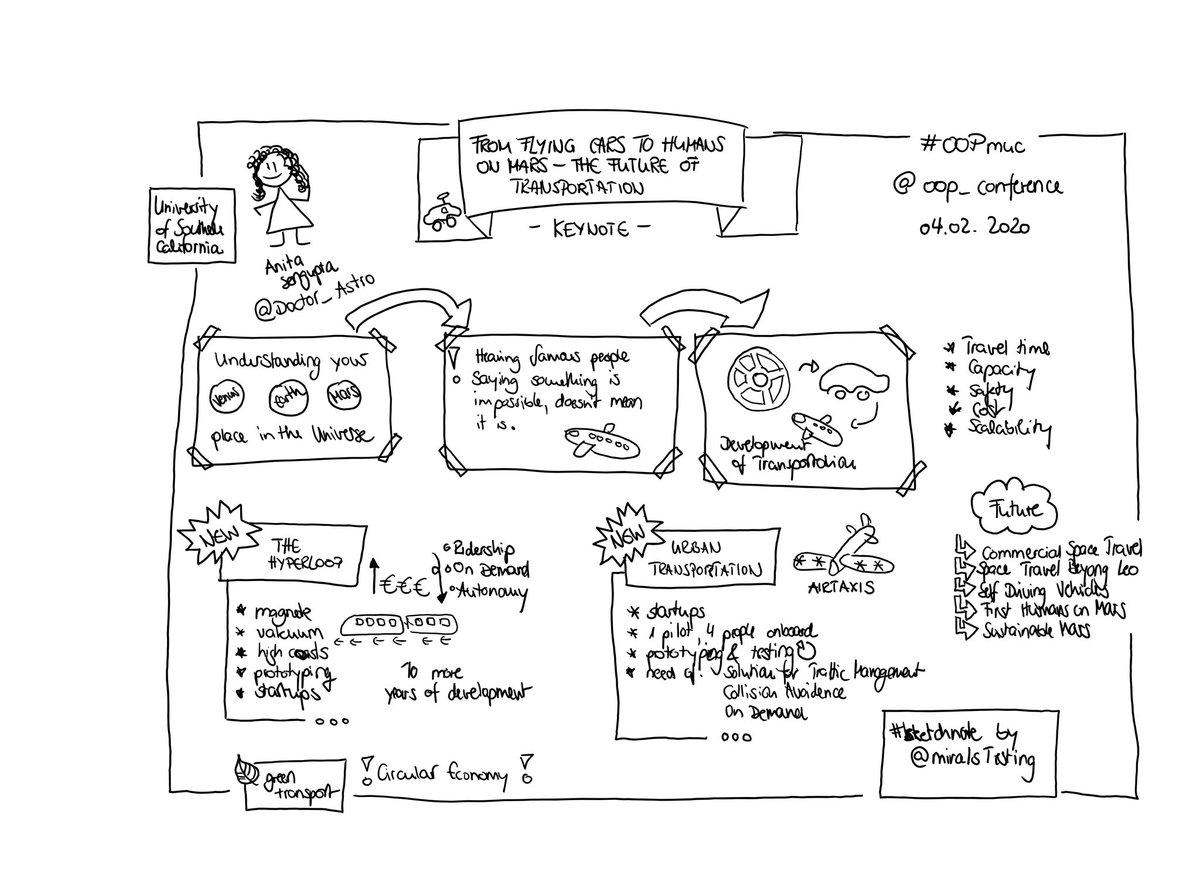 FROM FLYING CARS TO HUMANS
ON MARS – THE FUTURE OF
TRANSPORTATION
- KEYNOTE -
#OOPmuc
@oop_conference
04.02.2020
University
of Southern
California
Anita
Sengupta
@Doctor_Astro
Understanding your
Venus
Earth
Mars
place in the Universe
! Hearing famous people
saying something is
impossible, doesn't mean
it is.
Development
of Transportation
* Travel time
* Capacity
* Safety
* Cost
* Scalability
NEW
THE
HYPERLOOP
* magnete
* vakuum
* high costs
* prototyping
* startups
ooo
€€€
Ridership
On Demand
Autonomy
10 more
years of development
NEW
URBAN
TRANSPORTATION
AIRTAXIS
* startups
* 1 pilot, 4 people onboard
* prototyping & testing
* need of: Solution for Traffic Management
Collision Avoidence
On Demand
ooo
Future
Commercial Space Travel
Space Travel Beyong Leo
Self Diving Vehicles
First Humans on Mars
Sustainable Mars
green
transport
! Circular Economy !
#sketchnote by
@miralsTesting